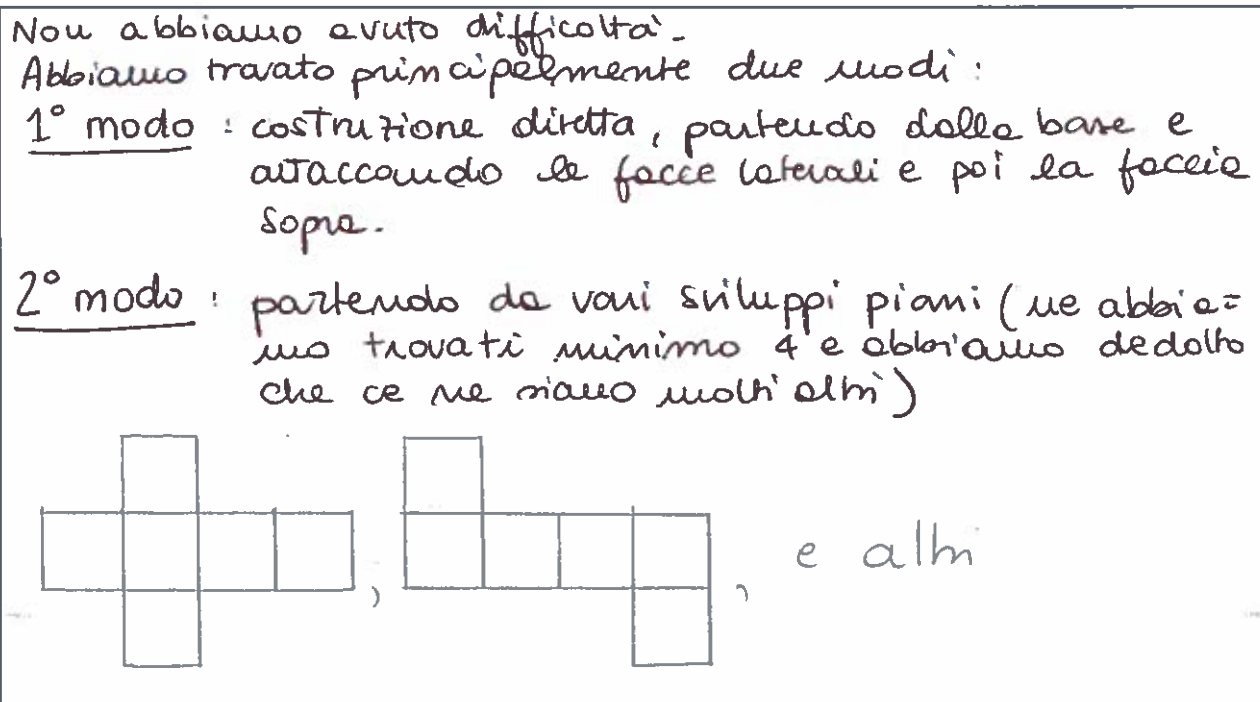 Non abbiamo avuto difficoltà.
Abbiamo trovato principalmente due modi:
1° modo : costruzione diretta, partendo dalla base e
attaccando le facce laterali e poi la faccia
sopra.
2° modo : partendo da vari sviluppi piani (ne abbia=
mo trovati minimo 4 e abbiamo dedotto
che ce ne siano molti altri)
, , e altri